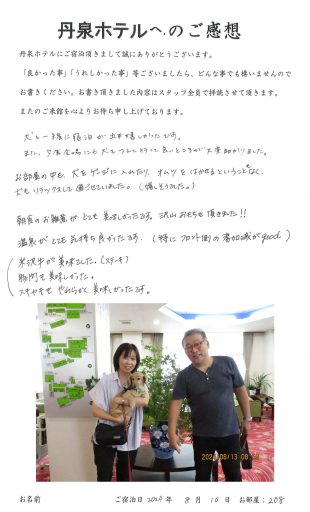 丹泉ホテルへのご感想
丹泉ホテルにご宿泊頂きまして誠にありがとうございます。
「良かった事」「うれしかった事」等ございましたら、どんな事でも構いませんので
お書きください。お書き頂きました内容はスタッフ全員で拝読させて頂きます。
またのご来館を心よりお待ち申し上げております。
犬と一緒に宿泊が出来嬉しかったです。
また、夕食会場にも犬をつれて行って良いところが大変助かりました。
お部屋の中も、犬をケージに入れたり、オムツをはかせるということもなく、
犬もリラックスして過ごせていました。(嬉しそうでした。)
朝食のお雑煮がとても美味しかったです。沢山おもちも頂きました!!
温泉がとても気持ち良かったです。(特にフロント側の湯加減がgood)
米沢牛が美味でした。(ステーキ)
豚肉も美味しかった。
スキヤキもやわらかく美味しかったです。
2024/08/13 08:
お名前 ご宿泊日 2024年 8月 10日 お部屋:208